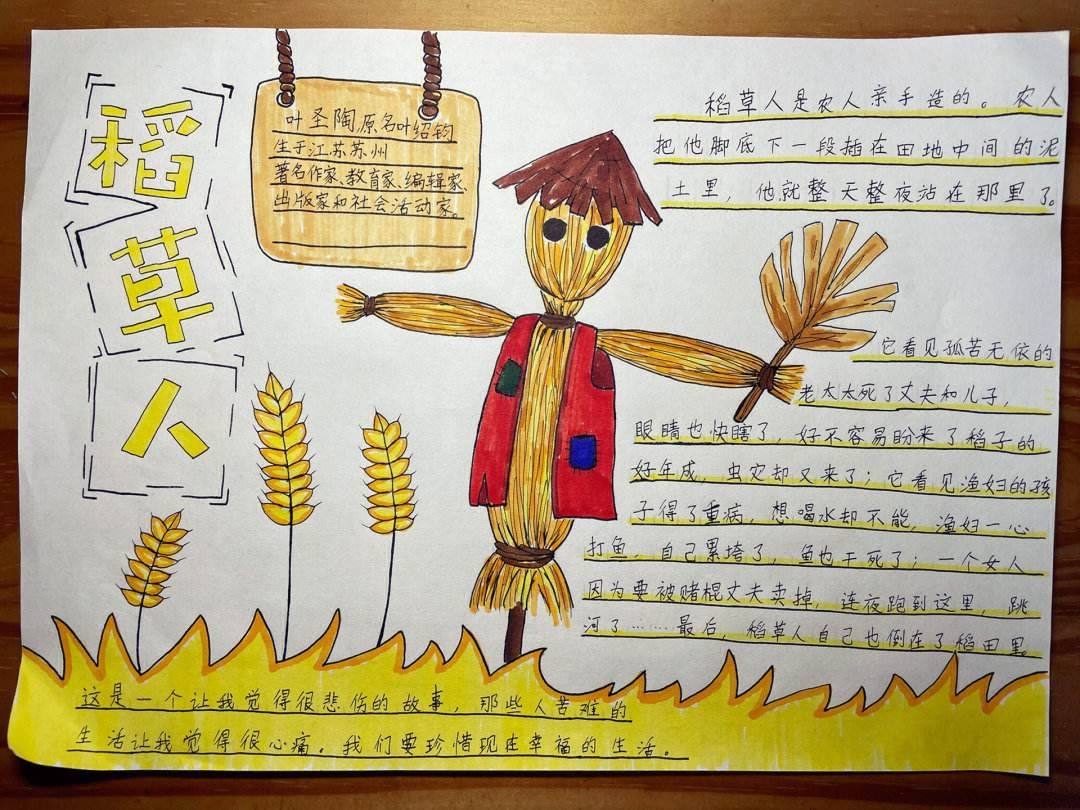 稻
草
人
叶圣陶原名叶绍钧
生于江苏苏州
著名作家、教育家、编辑家、
出版家和社会活动家。
稻草人是农人亲手造的。农人
把他脚底下一段插在田地中间的泥
土里，他就整天整夜站在那里了。
它看见孤苦无依的
老太太死了丈夫和儿子，
眼睛也快瞎了，好不容易盼来了稻子的
好年成，虫灾却又来了；它看见渔妇的孩
子得了重病，想喝水却不能，渔妇一心
打鱼，自己累垮了，鱼也干死了；一个女人
因为要被赌棍丈夫卖掉，连夜跑到这里，跳
河了……最后，稻草人自己也倒在了稻田里。
这是一个让我觉得很悲伤的故事，那些人苦难的
生活让我觉得很心痛。我们要珍惜现在幸福的生活。